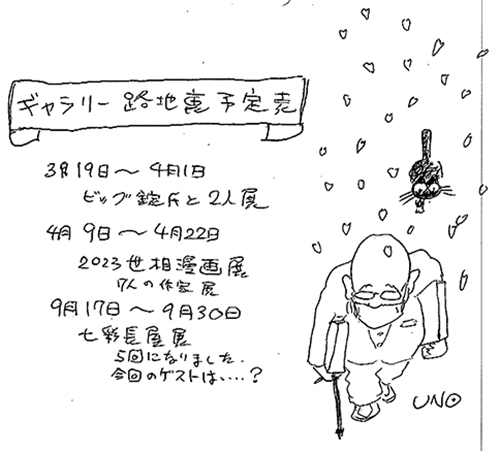 ギャラリー路地裏予定表
3月19日〜4月1日
ビッグ錠氏と2人展
4月9日〜4月22日
2023世相漫画展
7人の作家展
9月17日〜9月30日
七彩長屋展
5回になりました.
今回のゲストは‥‥?
UNO